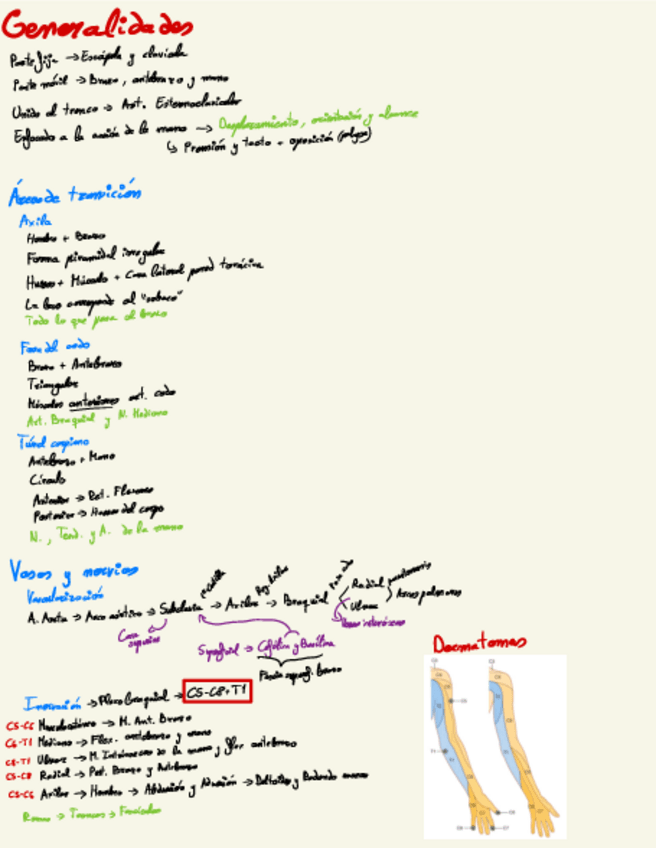 Generalidades
Parte fija → Escápula y clavícula
Parte móvil → Brazo, antebrazo y mano
Unido al tronco → Art. Esternoclavicular
Enfocado a la acción de la mano → Desplazamiento, orientación y alcance
↳ Prensión y tacto + oposición (pulgar)
Áreas de transición
Axila
Hombro + Brazo
Forma piramidal irregular
Hueso + Músculo + Cara lateral pared torácica
La base corresponde al "sobaco"
Todo lo que pasa al brazo
Fosa del codo
Brazo + Antebrazo
Triangular
Músculos anteriores art. codo
Art. Braquial y N. Mediano
Túnel carpiano
Antebrazo + Mano
Círculo
Anterior → Ret. Flexores
Posterior → Huesos del carpo
N., Tend. y A. de la mano
Vasos y nervios
Vascularización
A. Aorta → Arco aórtico → Subclavia → Axilar → Braquial
Radial
Ulnar
Arcos palmares
Cava superior
Superficial → Cefálica y Basílica
Fascia superf. brazo
Dermatomas
Inervación → Plexo braquial → C5-C8+T1
C5-C6 Musculocutáneo → M. Ant. Brazo
C6-T1 Mediano → Flex. antebrazo y mano
C8-T1 Ulnar → M. Intrínsecos de la mano y flex antebrazo
C5-C8 Radial → Post. Brazo y Antebrazo
C5-C6 Axilar → Hombro → Abducción y → Deltoides y Redondo menor
Ramos → Troncos → Fascículos